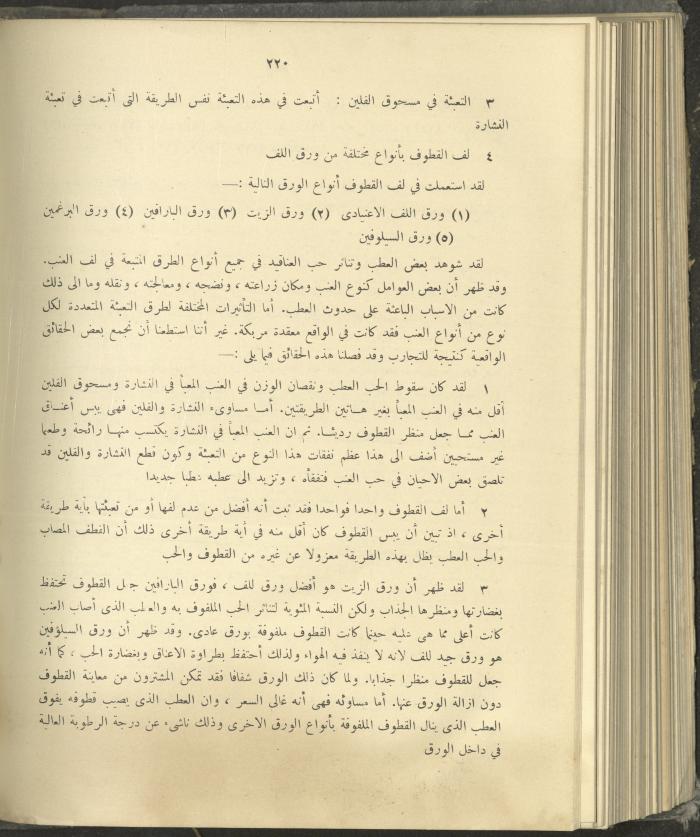 ٢٢٠
٣ التعبئة في مسحوق الفلين : أتبعت في هذه التعبئة نفس الطريقة التى أتبعت في تعبئة
النشارة
٤ لف القطوف بأنواع مختلفة من ورق اللف
لقد استعملت في لف القطوف أنواع الورق التالية :—
(١) ورق اللف الاعتيادى (٢) ورق الزيت (٣) ورق البارافين (٤) ورق البرغمين
(٥) ورق السيلوفين
لقد شوهد بعض العطب وتناثر حب العناقيد في جميع أنواع الطرق المتبعة في لف العنب.
وقد ظهر أن بعض العوامل كنوع العنب ومكان زراعته ، ونضجه ، ومعالجته ، ونقله وما الى ذلك
كانت من الاسباب الباعثة على حدوث العطب. أما التأثيرات المختلفة لطرق التعبئة المتعددة لكل
نوع من أنواع العنب فقد كانت في الواقع معقدة مربكة. غير أننا استطعنا أن نجمع بعض الحقائق
الواقعية كنتيجة للتجارب وقد فصلنا هذه الحقائق فيما يلى :—
١ لقد كان سقوط الحب العطب ونقصان الوزن في العنب المعبأ في النشارة ومسحوق الفلين
أقل منه في العنب المعبأ بغير هاتين الطريقتين. أما مساوىء النشارة والفلين فهى يبس أعناق
العنب مما جعل منظر القطوف رديئا. ثم ان العنب المعبأ في النشارة يكتسب منها رائحة وطعما
غير مستحبين أضف الى هذا عظم نفقات هذا النوع من التعبئة وكون قطع النشارة والفلين قد
تلصق بعض الاحيان في حب العنب فتفقأه ، وتزيد الى عطبه عطبا جديدا
٢ أما لف القطوف واحدا فواحدا فقد ثبت أنه أفضل من عدم لفها أو من تعبئتها بأية طريقة
أخرى ، اذ تبين أن يبس القطوف كان أقل منه في أية طريقة أخرى ذلك أن القطف المصاب
والحب العطب يظل بهذه الطريقة معزولا عن غيره من القطوف والحب
٣ لقد ظهر أن ورق الزيت هو أفضل ورق للف ، فورق البارافين جعل القطوف تحتفظ
بغضارتها ومنظرها الجذاب ولكن النسبة المئوية لتناثر الحب الملفوف به والعطب الذى أصاب العنب
كانت أعلى مما هى عليه حينما كانت القطوف ملفوفة بورق عادى. وقد ظهر أن ورق السيلوفين
هو ورق جيد للف لانه لا ينفذ فيه الهواء ولذلك أحتفظ بطراوة الاعناق وبغضارة الحب ، كما أنه
جعل للقطوف منظرا جذابا. ولما كان ذلك الورق شفافا فقد تمكن المشترون من معاينة القطوف
دون ازالة الورق عنها. أما مساوئه فهى أنه غالى السعر ، وان العطب الذى يصيب قطوفه يفوق
العطب الذى ينال القطوف الملفوفة بأنواع الورق الاخرى وذلك ناشىء عن درجة الرطوبة العالية
في داخل الورق